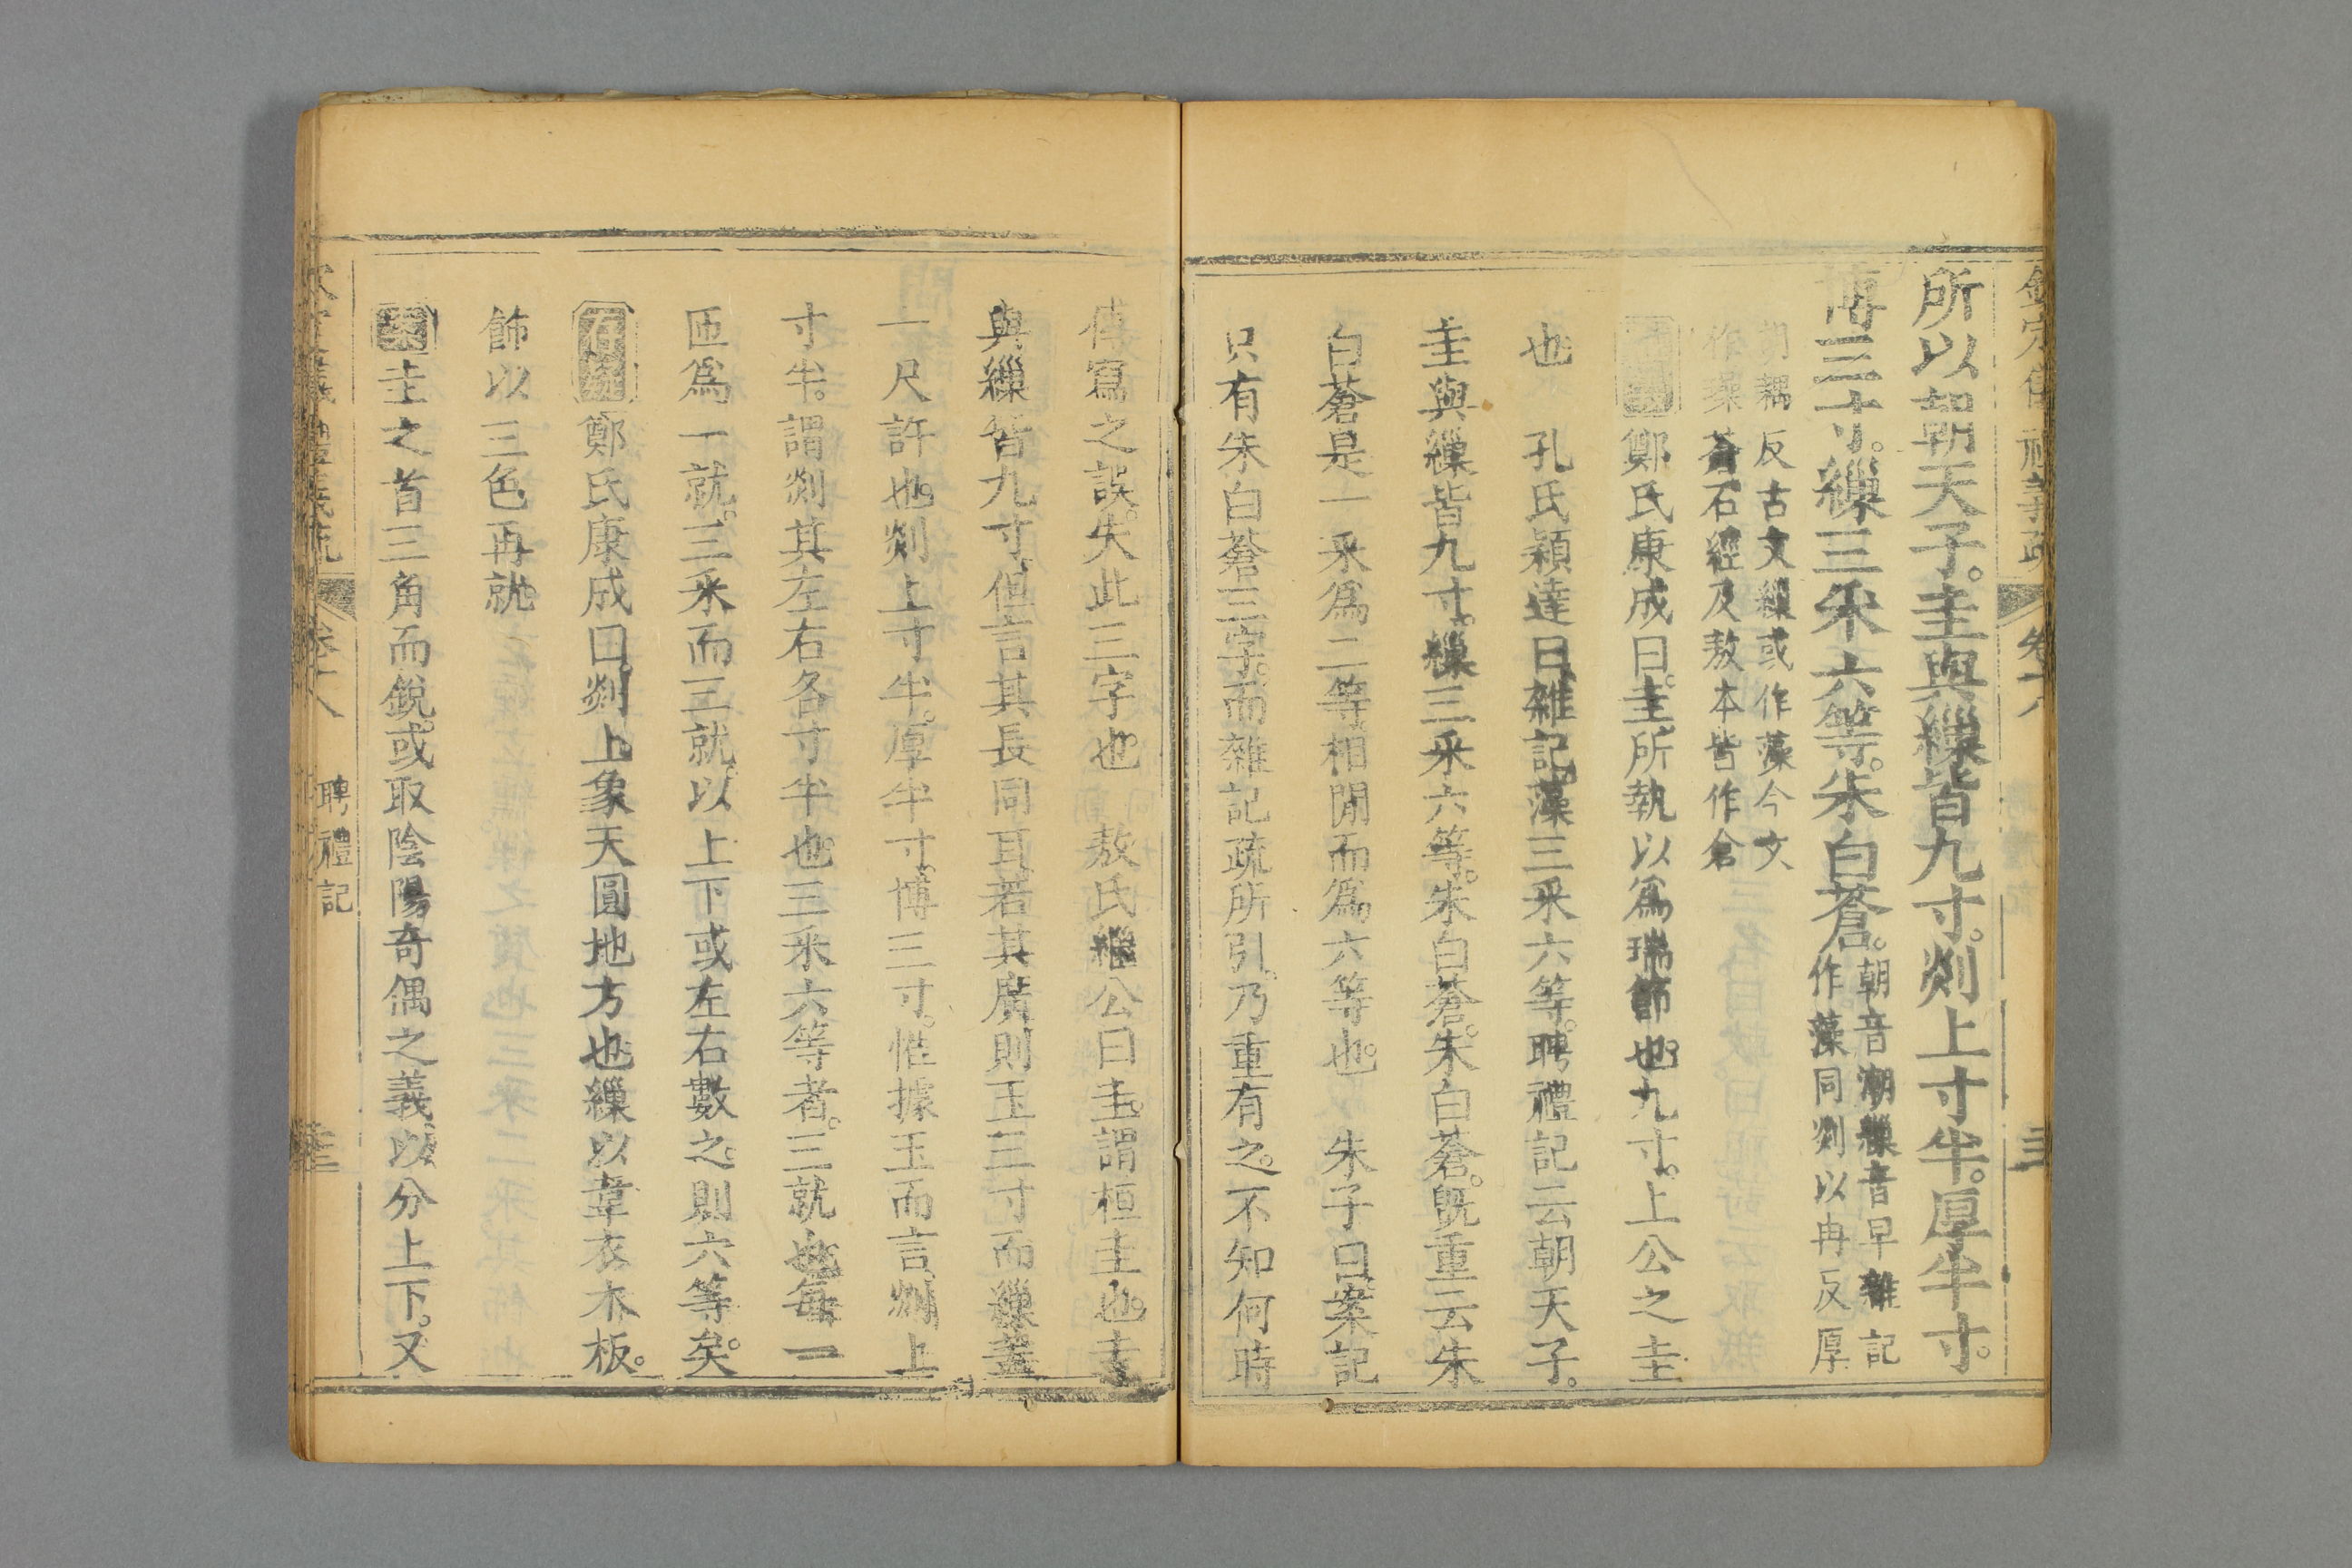 欽定儀禮義疏 卷十八
所以朝天子。圭與繅皆九寸。剡上寸半。厚半寸。
博三寸。繅三采六等。朱白蒼。朝音潮繅音早雜記
作藻同剡以冉反厚
胡耦反古文繅或作藻今文
作璪 蒼石經及敖本皆作倉
鄭氏康成曰。圭。所執以爲瑞節也。九寸。上公之圭
也 孔氏穎達曰。雜記。藻三采六等。聘禮記云朝天子。
圭與繅皆九寸。繅三采六等。朱白蒼。朱白蒼。既重云朱
白蒼。是一采爲二等。相閒而爲六等也。 朱子曰。案記
只有朱白蒼三字。而雜記疏所引。乃重有之。不知何時
傳寫之誤。失此三字也 敖氏繼公曰。圭。謂桓圭也。圭
與繅皆九寸。但言其長同耳。若其廣則玉三寸而繅蓋
一尺許也。剡上寸半。厚半寸。博三寸。惟據玉而言。剡上
寸半。謂剡其左右各寸半也。三采六等者。三就也。每一
匝爲一就。三采而三就。以上下或左右數之。則六等矣。
鄭氏康成曰。剡上象天圓地方也繅以韋衣木板。
飾以三色再就
圭之首三角而銳。或取陰陽奇偶之義。以分上下。又
儀禮義疏 卷十八 聘禮記